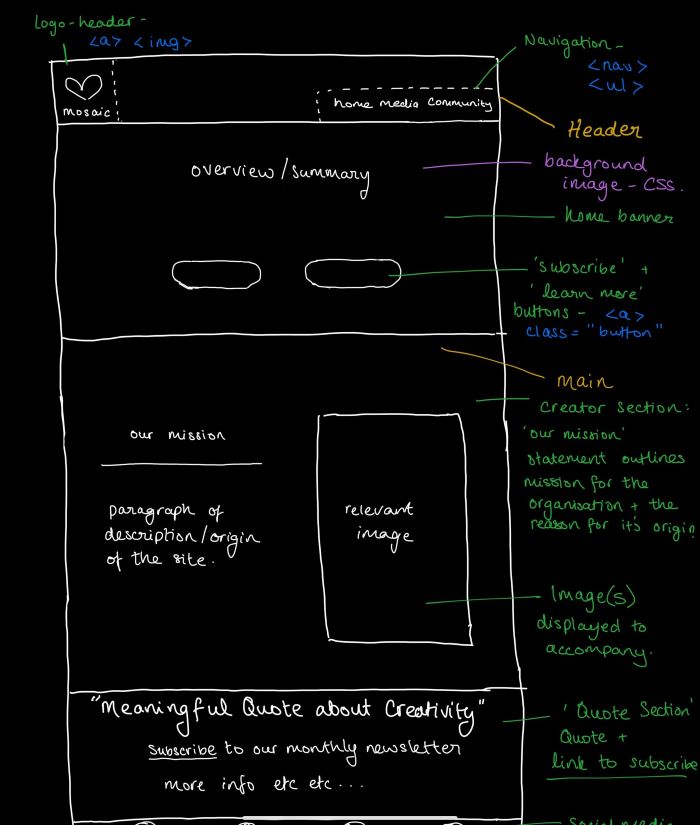 Logo-header -
<a> <img>
Navigation -
<nav>
<ul>
mosaic
home media community
Header
overview/summary
background
image - CSS.
home banner
'subscribe' +
'learn more'
buttons - <a>
class = "button"
main
Creator section:
our mission
'our mission'
statement outlines
mission for the
organisation + the
reason for it's origin
paragraph of
description/origin
of the site.
relevant
image
Image(s)
displayed to
accompany.
"Meaningful Quote about Creativity"
subscribe to our monthly newsletter
more info etc etc...
'Quote Section'
Quote +
link to subscribe
Social media